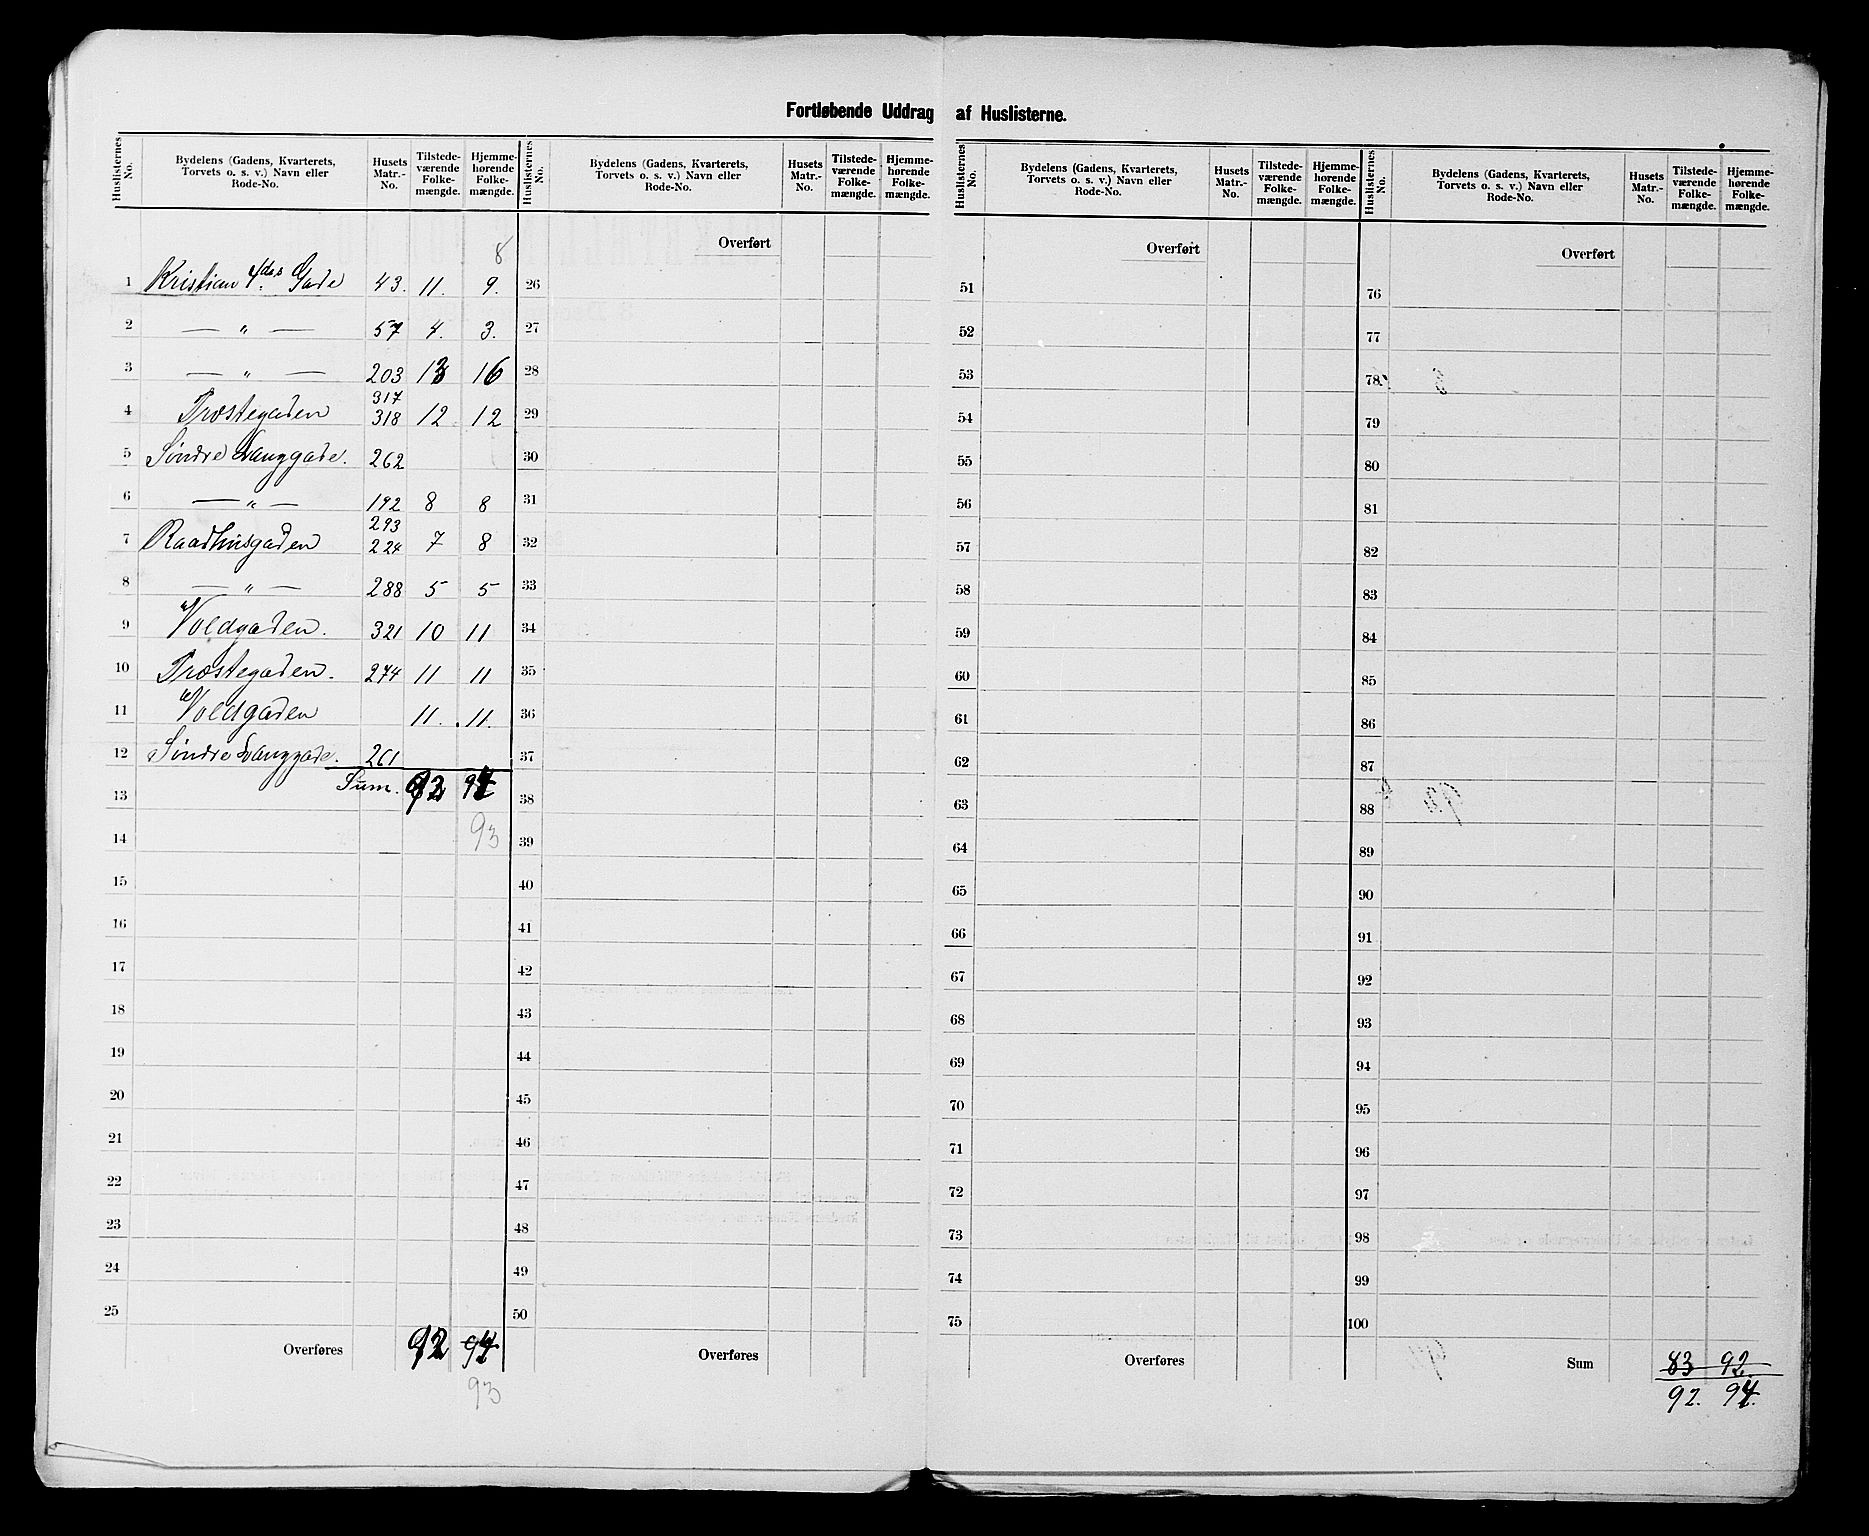 Fortløbende Uddrag af Huslisterne.
Huslisternes No. | Bydelens (Gadens, Kvarterets, Torvets o. s. v.) Navn eller Rode-No. | Husets Matr.-No. | Tilstede-værende Folke-mængde. | Hjemme-hørende Folke-mængde.
Huslisternes No. | Bydelens (Gadens, Kvarterets, Torvets o. s. v.) Navn eller Rode-No. | Husets Matr.-No. | Tilstede-værende Folke-mængde. | Hjemme-hørende Folke-mængde.
Huslisternes No. | Bydelens (Gadens, Kvarterets, Torvets o. s. v.) Navn eller Rode-No. | Husets Matr.-No. | Tilstede-værende Folke-mængde. | Hjemme-hørende Folke-mængde.
Huslisternes No. | Bydelens (Gadens, Kvarterets, Torvets o. s. v.) Navn eller Rode-No. | Husets Matr.-No. | Tilstede-værende Folke-mængde. | Hjemme-hørende Folke-mængde.
8
1 Kristian 4des Gade 43. 11. 9.
2 — " — 57 4. 3.
3 — " — 203 13 16
317
4 Præstegaden 318 12 12
5 Søndre Langgade. 262
6 — " — 192 8 8
293
7 Raadhusgaden 224 7 8
8 — " — 288 5 5
9 Voldgaden. 321 10 11
10 Præstegaden. 274 11 11
11 Voldgaden 11. 11.
12 Søndre Langgade. 261
13 Sum. 92 94
14 93
15
16
17
18
19
20
21
22
23
24
25
Overføres 92 94
93
Overført
26
27
28
29
30
31
32
33
34
35
36
37
38
39
40
41
42
43
44
45
46
47
48
49
50
Overføres
Overført
51
52
53
54
55
56
57
58
59
60
61
62
63
64
65
66
67
68
69
70
71
72
73
74
75
Overføres
Overført
76
77
78
79
80
81
82
83
84
85
86
87
88
89
90
91
92
93
94
95
96
97
98
99
100
Sum 83 92.
92. 94.